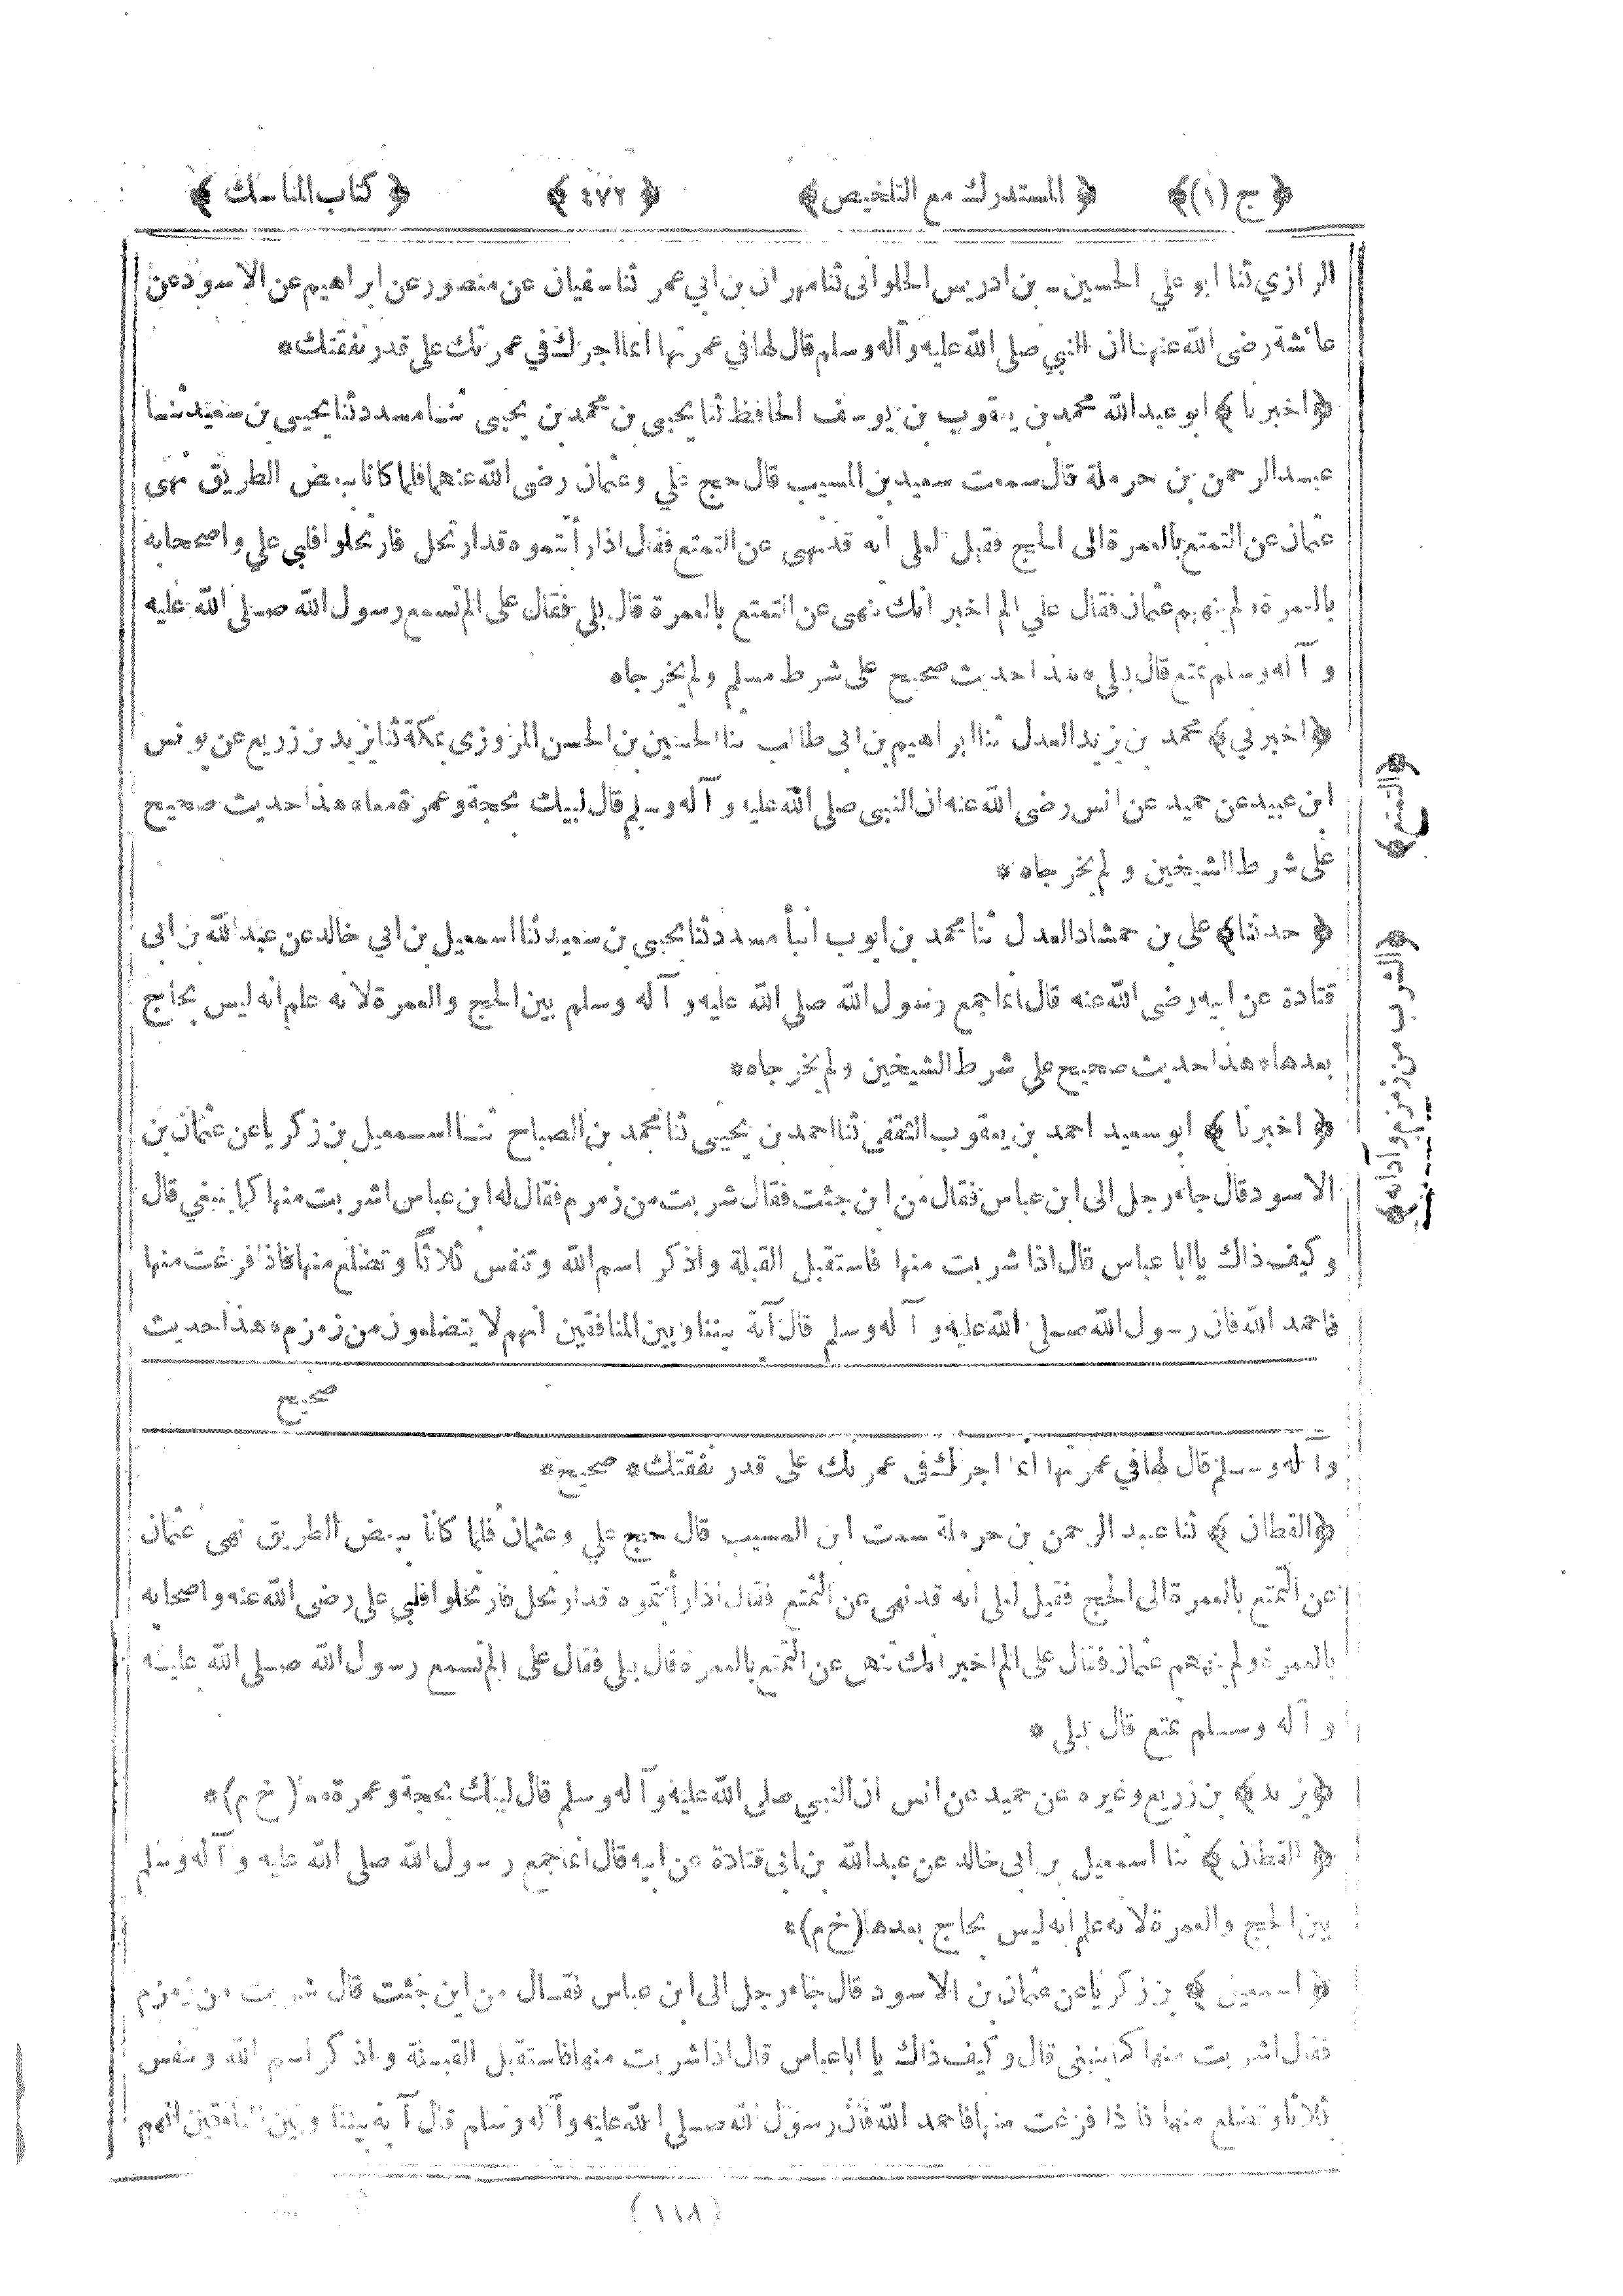 ﴿ ج (١) ﴾ ﴿ المستدرك مع التلخيص ﴾ ﴿ ٤٧٢ ﴾ ﴿ كتاب المناسك ﴾
الرازي ثنا ابو علي الحسين بن ادريس الحلواني ثنا مهران بن ابي عمر ثنا سفيان عن منصور عن ابراهيم عن الاسود عن
عائشة رضى الله عنها ان النبي صلى الله عليه وآله وسلم قال لها في عمرتها انما اجرك في عمرتك على قدر نفقتك *
﴿ اخبرنا ﴾ ابو عبد الله محمد بن يعقوب بن يوسف الحافظ ثنا يحيى بن محمد بن يحيى ثنا مسدد ثنا يحيى بن سعيد ثنا
عبد الرحمن بن حرملة قال سمعت سعيد بن المسيب قال حج علي وعثمان رضى الله عنهما فلما كانا ببعض الطريق نهى
عثمان عن التمتع بالعمرة الى الحج فقيل لعلى انه قد نهى عن التمتع فقال اذا رأيتموه قد ارتحل فارتحلوا فلبى علي واصحابه
بالعمرة ولم ينههم عثمان فقال علي الم اخبر انك تنهى عن التمتع بالعمرة قال بلى فقال على الم تسمع رسول الله صلى الله عليه
وآله وسلم تمتع قال بلى * هذا حديث صحيح على شرط مسلم ولم يخرجاه
﴿ اخبرني ﴾ محمد بن يزيد العدل ثنا ابراهيم بن ابى طالب ثنا الحسين بن الحسن المروزى بمكة ثنا يزيد بن زريع عن يونس
ابن عبيد عن حميد عن انس رضى الله عنه ان النبى صلى الله عليه وآله وسلم قال لبيك بحجة وعمرة معا * هذا حديث صحيح
على شرط الشيخين ولم يخرجاه *
﴿ حدثنا ﴾ على بن حمشاد العدل ثنا محمد بن ايوب انبأ مسدد ثنا يحيى بن سعيد ثنا اسمعيل بن ابي خالد عن عبد الله بن ابى
قتادة عن ابيه رضى الله عنه قال انما جمع رسول الله صلى الله عليه وآله وسلم بين الحج والعمرة لانه علم انه ليس بحاج
بعدها * هذا حديث صحيح على شرط الشيخين ولم يخرجاه *
﴿ اخبرنا ﴾ ابو سعيد احمد بن يعقوب الثقفى ثنا احمد بن يحيى ثنا محمد بن الصباح ثنا اسمعيل بن زكريا عن عثمان بن
الاسود قال جاء رجل الى ابن عباس فقال من اين جئت فقال شربت من زمزم فقال له ابن عباس اشربت منها كما ينبغي قال
وكيف ذاك يا ابا عباس قال اذا شربت منها فاستقبل القبلة واذكر اسم الله وتنفس ثلاثاً وتضلع منها فاذا فرغت منها
فاحمد الله فان رسول الله صلى الله عليه وآله وسلم قال آية بيننا وبين المنافقين انهم لا يتضلعون من زمزم * هذا حديث
صحيح
﴿ التمتع ﴾
﴿ الشرب من زمزم وآدابه ﴾
وآله وسلم قال لها في عمرتها انما اجرك فى عمرتك على قدر نفقتك * صحيح *
﴿ القطان ﴾ ثنا عبد الرحمن بن حرملة سمعت ابن المسيب قال حج علي وعثمان فلما كانا ببعض الطريق نهى عثمان
عن التمتع بالعمرة الى الحج فقيل لعلى انه قد نهى عن التمتع فقال اذا رأيتموه قد ارتحل فارتحلوا فلبي على رضى الله عنه واصحابه
بالعمرة ولم ينههم عثمان فقال على الم اخبر انك تنهى عن التمتع بالعمرة قال بلى فقال على الم تسمع رسول الله صلى الله عليه
وآله وسلم تمتع قال بلى *
﴿ يزيد ﴾ بن زريع وغيره عن حميد عن انس ان النبي صلى الله عليه وآله وسلم قال لبيك بحجة وعمرة معا ( خ م ) *
﴿ القطان ﴾ ثنا اسمعيل بن ابى خالد عن عبد الله بن ابى قتادة عن ابيه قال انما جمع رسول الله صلى الله عليه وآله وسلم
بين الحج والعمرة لانه علم انه ليس بحاج بعدها ( خ م ) *
﴿ اسمعيل ﴾ بن زكريا عن عثمان بن الاسود قال جاء رجل الى ابن عباس فقال من اين جئت قال شربت من زمزم
فقال اشربت منها كما ينبغى قال وكيف ذاك يا ابا عباس قال اذا شربت منها فاستقبل القبلة واذكر اسم الله وتنفس
ثلاثا وتضلع منها فاذا فرغت منها فاحمد الله فان رسول الله صلى الله عليه وآله وسلم قال آية بيننا وبين المنافقين انهم
( ١١٨ )